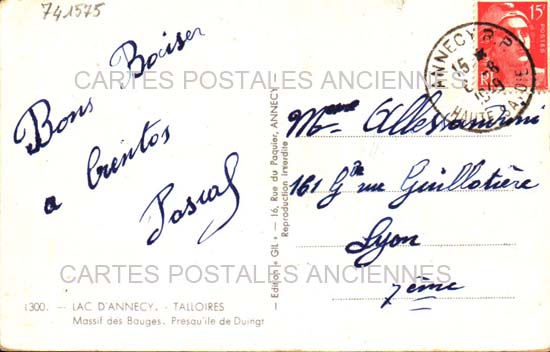 741575
Bons Baiser
a bientos
Pascal
1300. — LAC D'ANNECY. - TALLOIRES
Massif des Bauges. Presqu'ile de Duingt
Edition « GIL » — 16, Rue du Paquier, ANNECY —
Reproduction Interdite
15F
POSTES
ANNECY R.P.
15
8
1949
HAUTE SAVOIE
Mme Allessandrini
161 Gde rue Guillotière
Lyon
7ème
CARTES POSTALES ANCIENNES
CARTES POSTALES ANCIENNES